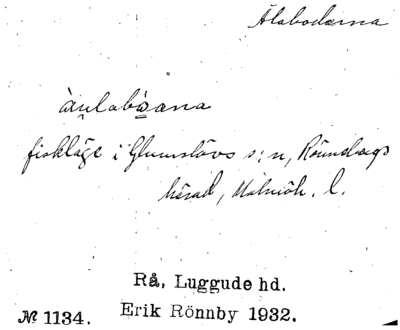 Ålabodarna
àu̯labo̱ana
fiskläge i Glumslövs s:n, Rönnebergs
härad, Malmöh. l.
Rå, Luggude hd.
№ 1134. Erik Rönnby 1932.